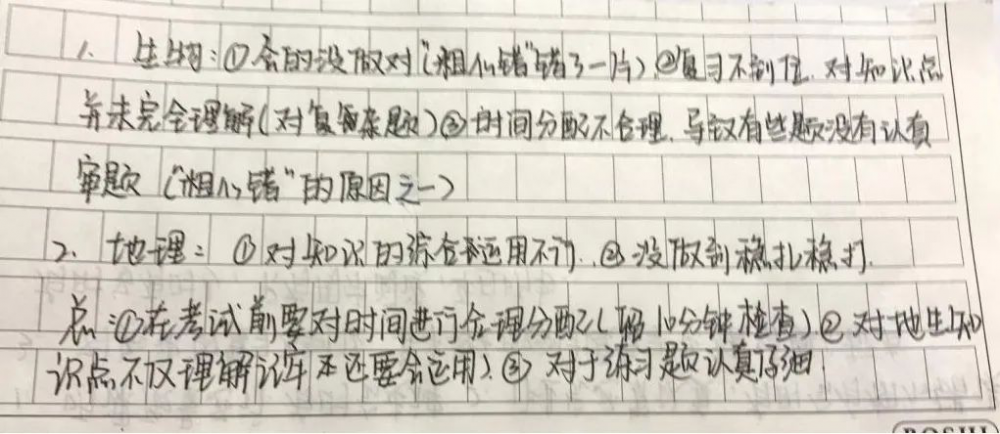 1. 生物:①会的没做对("粗心错"错了一片)②复习不到位.对知识点
并未完全理解(对复杂题)③时间分配不合理.导致有些题没有认真
审题("粗心错"的原因之一)
2. 地理:①对知识的综合运用不行.②没做到稳扎稳打.
总:①在考试前要对时间进行合理分配(留10分钟检查)②对地生知
识点不仅理解记牢还要会运用).③对于练习题认真仔细
BOSHI